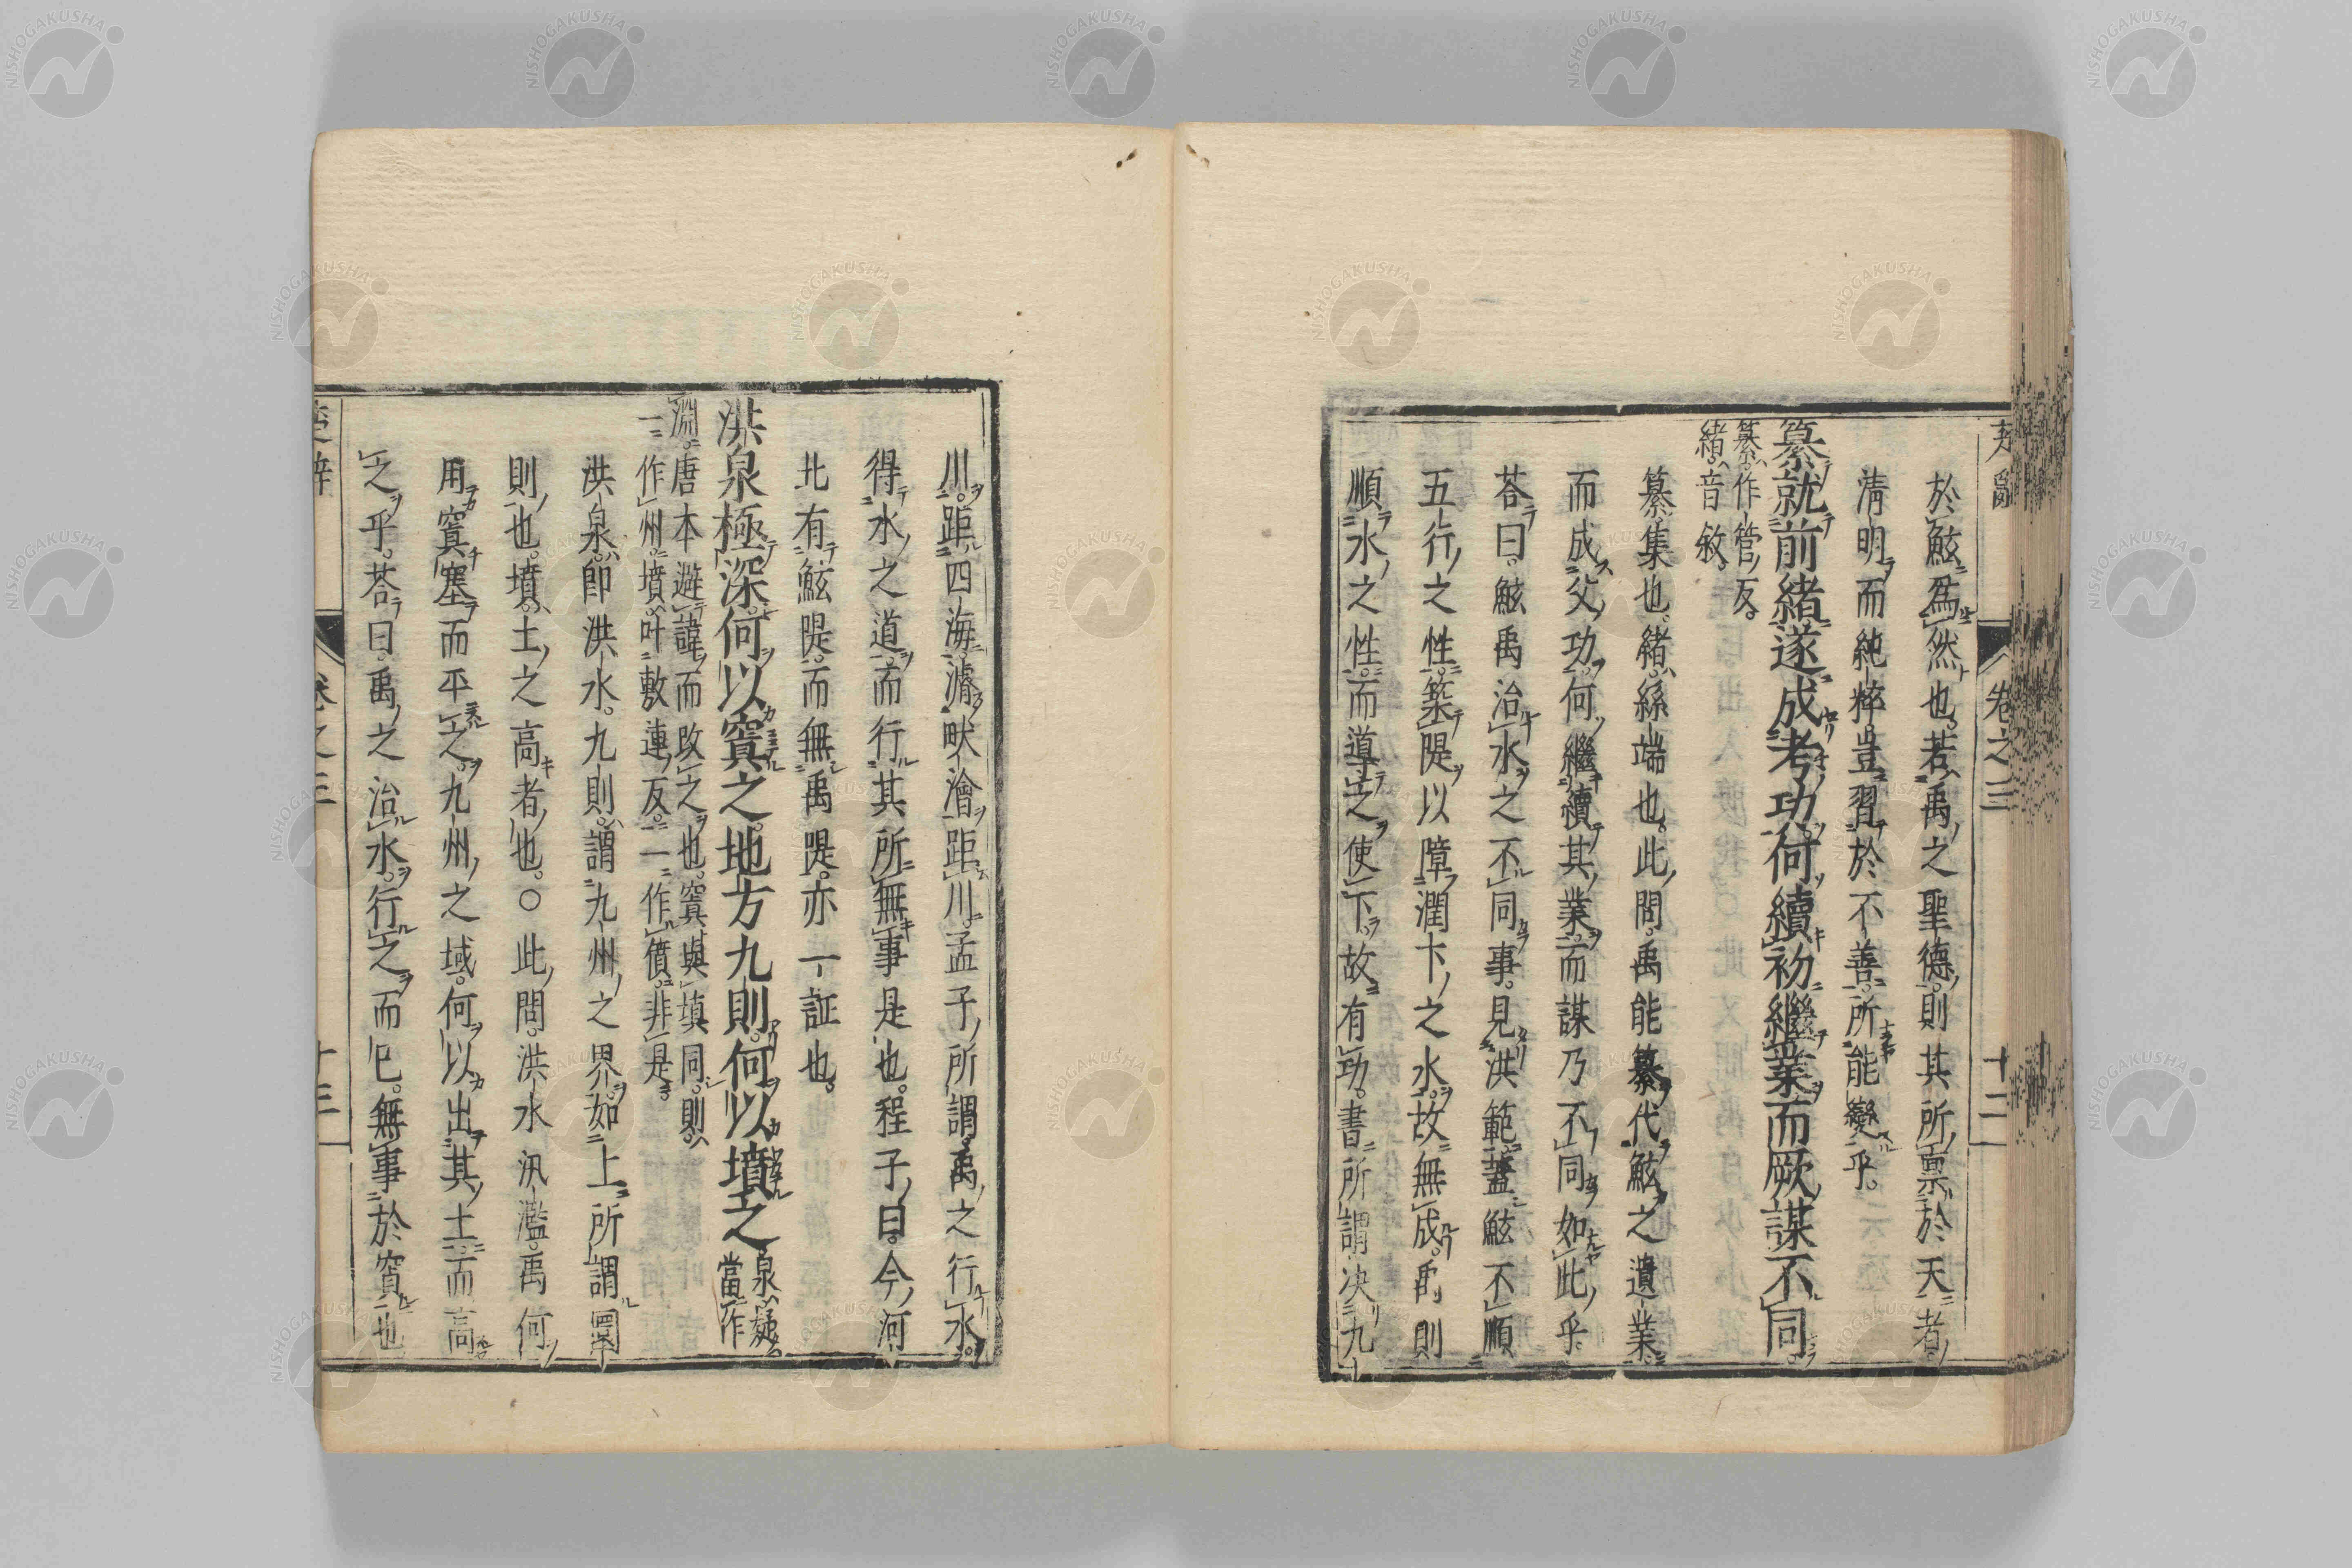 楚辭 卷之三 十二
於鮌爲然也。若禹之聖德。則其所稟於天者。
淸明而純粹。豈習於不善。所能變乎。
纂就前緒。遂成考功。何續初繼業。而厥謀不同。
纂。作管反。
緖。音敘。
纂。集也。緖。絲端也。此問。禹能纂代鮌之遺業。
而成父功。何繼續其業。而謀乃不同如此乎。
荅曰。鮌禹治水之不同事。見洪範。蓋鮌不順
五行之性。築隄以障潤下之水。故無成。禹則
順水之性。而道之使下。故有功。書所謂决九
川。距四海。濬畎澮距川。孟子所謂禹之行水。
得水之道。而行其所無事。是也。程子曰。今河
北有鮌隄。而無禹隄。亦一証也。
洪泉極深。何以窴之。地方九則。何以墳之
泉。疑
當作
淵。唐本避諱而改之也。窴與塡同。則。
一作州。墳。叶敷連反。一作僨。非是。
洪泉。卽洪水。九則。謂九州之界。如上所謂圜
則也。墳。土之高者也。○此問。洪水汎濫。禹何
用窴塞而平之。九州之域。何以出其土而高
之乎。荅曰。禹之治水。行之而已。無事於窴也
楚辭 卷之三 十三